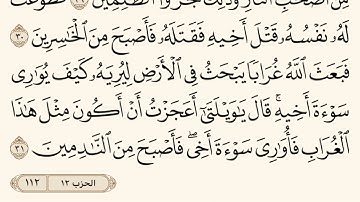 مِنْ أَصْحَٰبِ ٱلنَّارِ وَذَٰلِكَ جَزَٰٓؤُا۟ ٱلظَّٰلِمِينَ ٢٩ فَطَوَّعَتْ
لَهُۥ نَفْسُهُۥ قَتْلَ أَخِيهِ فَقَتَلَهُۥ فَأَصْبَحَ مِنَ ٱلْخَٰسِرِينَ ٣٠
فَبَعَثَ ٱللَّهُ غُرَابًا يَبْحَثُ فِى ٱلْأَرْضِ لِيُرِيَهُۥ كَيْفَ يُوَٰرِى
سَوْءَةَ أَخِيهِ ۚ قَالَ يَٰوَيْلَتَىٰٓ أَعَجَزْتُ أَنْ أَكُونَ مِثْلَ هَٰذَا
ٱلْغُرَابِ فَأُوَٰرِىَ سَوْءَةَ أَخِى ۖ فَأَصْبَحَ مِنَ ٱلنَّٰدِمِينَ ٣١
الحزب ١٢ ١١٢